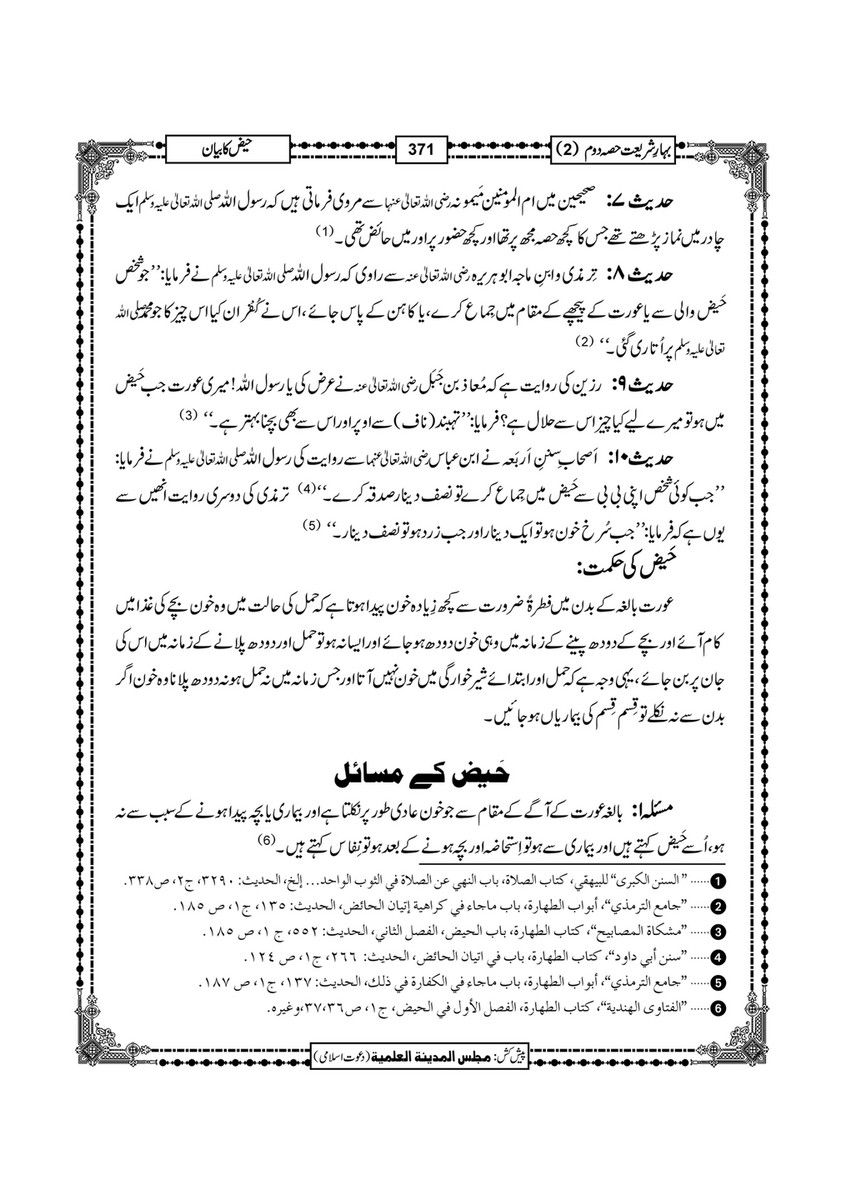 بہارِ شریعت حصہ دوم (2)
371
حیض کا بیان
حدیث ۷: صحیحین میں ام المؤمنین مَیمونہ رضی اللہ تعالیٰ عنہا سے مروی فرماتی ہیں کہ رسول اللہ صلی اللہ تعالیٰ علیہ وسلم ایک
چادر میں نماز پڑھتے تھے جس کا کچھ حصہ مجھ پر تھا اور کچھ حضور پر اور میں حائض تھی۔ (1)
حدیث ۸: تِرمذی و ابنِ ماجہ ابوہریرہ رضی اللہ تعالیٰ عنہ سے راوی کہ رسول اللہ صلی اللہ تعالیٰ علیہ وسلم نے فرمایا: ’’جو شخص
حَیض والی سے یا عورت کے پیچھے کے مقام میں جِماع کرے، یا کاہن کے پاس جائے، اس نے کُفْران کیا اس چیز کا جو محمد صلی اللہ
تعالیٰ علیہ وسلم پر اُتاری گئی۔‘‘ (2)
حدیث ۹: رزین کی روایت ہے کہ مُعاذ بن جَبَل رضی اللہ تعالیٰ عنہ نے عرض کی یا رسول اللہ! میری عورت جب حَیض
میں ہو تو میرے لیے کیا چیز اس سے حلال ہے؟ فرمایا: ’’تہبند (ناف) سے اوپر اور اس سے بھی بچنا بہتر ہے۔‘‘ (3)
حدیث ۱۰: اَصحابِ سننِ اَربَعہ نے ابن عباس رضی اللہ تعالیٰ عنہما سے روایت کی رسول اللہ صلی اللہ تعالیٰ علیہ وسلم نے فرمایا:
’’جب کوئی شخص اپنی بی بی سے حَیض میں جِماع کرے تو نصف دینار صدقہ کرے۔‘‘(4) ترمذی کی دوسری روایت انھیں سے
یوں ہے کہ فرمایا: ’’جب سُرخ خون ہو تو ایک دینار اور جب زرد ہو تو نصف دینار۔‘‘ (5)
حَیض کی حکمت:
عورت بالغہ کے بدن میں فطرۃً ضرورت سے کچھ زِیادہ خون پیدا ہوتا ہے کہ حمل کی حالت میں وہ خون بچے کی غذا میں
کام آئے اور بچے کے دودھ پینے کے زمانہ میں وہی خون دودھ ہو جائے اور ایسا نہ ہو تو حمل اور دودھ پلانے کے زمانہ میں اس کی
جان پر بن جائے، یہی وجہ ہے کہ حمل اور ابتدائے شیر خوارگی میں خون نہیں آتا اور جس زمانہ میں نہ حمل ہو نہ دودھ پلانا وہ خون اگر
بدن سے نہ نکلے تو قِسم قِسم کی بیماریاں ہو جائیں۔
حَیض کے مسائل
مسئلہ ۱: بالغہ عورت کے آگے کے مقام سے جو خون عادی طور پر نکلتا ہے اور بیماری یا بچہ پیدا ہونے کے سبب سے نہ
ہو، اُسے حَیض کہتے ہیں اور بیماری سے ہو تو اِستحاضہ اور بچہ ہونے کے بعد ہو تو نِفاس کہتے ہیں۔ (6)
1 ...... ’’السنن الکبری‘‘ للبيهقي، کتاب الصلاة، باب النهي عن الصلاة في الثوب الواحد... إلخ، الحديث: ۳۲۹۰، ج۲، ص۳۳۸.
2 ...... ’’جامع الترمذي‘‘، أبواب الطهارة، باب ماجاء في کراهية إتيان الحائض، الحديث: ۱۳۵، ج۱، ص ۱۸۵.
3 ...... ’’مشکاة المصابيح‘‘، کتاب الطهارة، باب الحيض، الفصل الثاني، الحديث: ۵۵۲، ج ۱، ص ۱۸۵.
4 ...... ’’سنن أبي داود‘‘، کتاب الطهارة، باب في اتيان الحائض، الحديث: ۲۶۶، ج۱، ص ۱۲۴.
5 ...... ’’جامع الترمذي‘‘، أبواب الطهارة، باب ماجاء في الکفارة في ذلك، الحديث: ۱۳۷، ج۱، ص ۱۸۷.
6 ...... ’’الفتاوى الهندية‘‘، کتاب الطهارة، الفصل الأول في الحيض، ج۱، ص۳۶،۳۷، وغيره.
پیش کش: مجلس المدینة العلمیة (دعوت اسلامی)